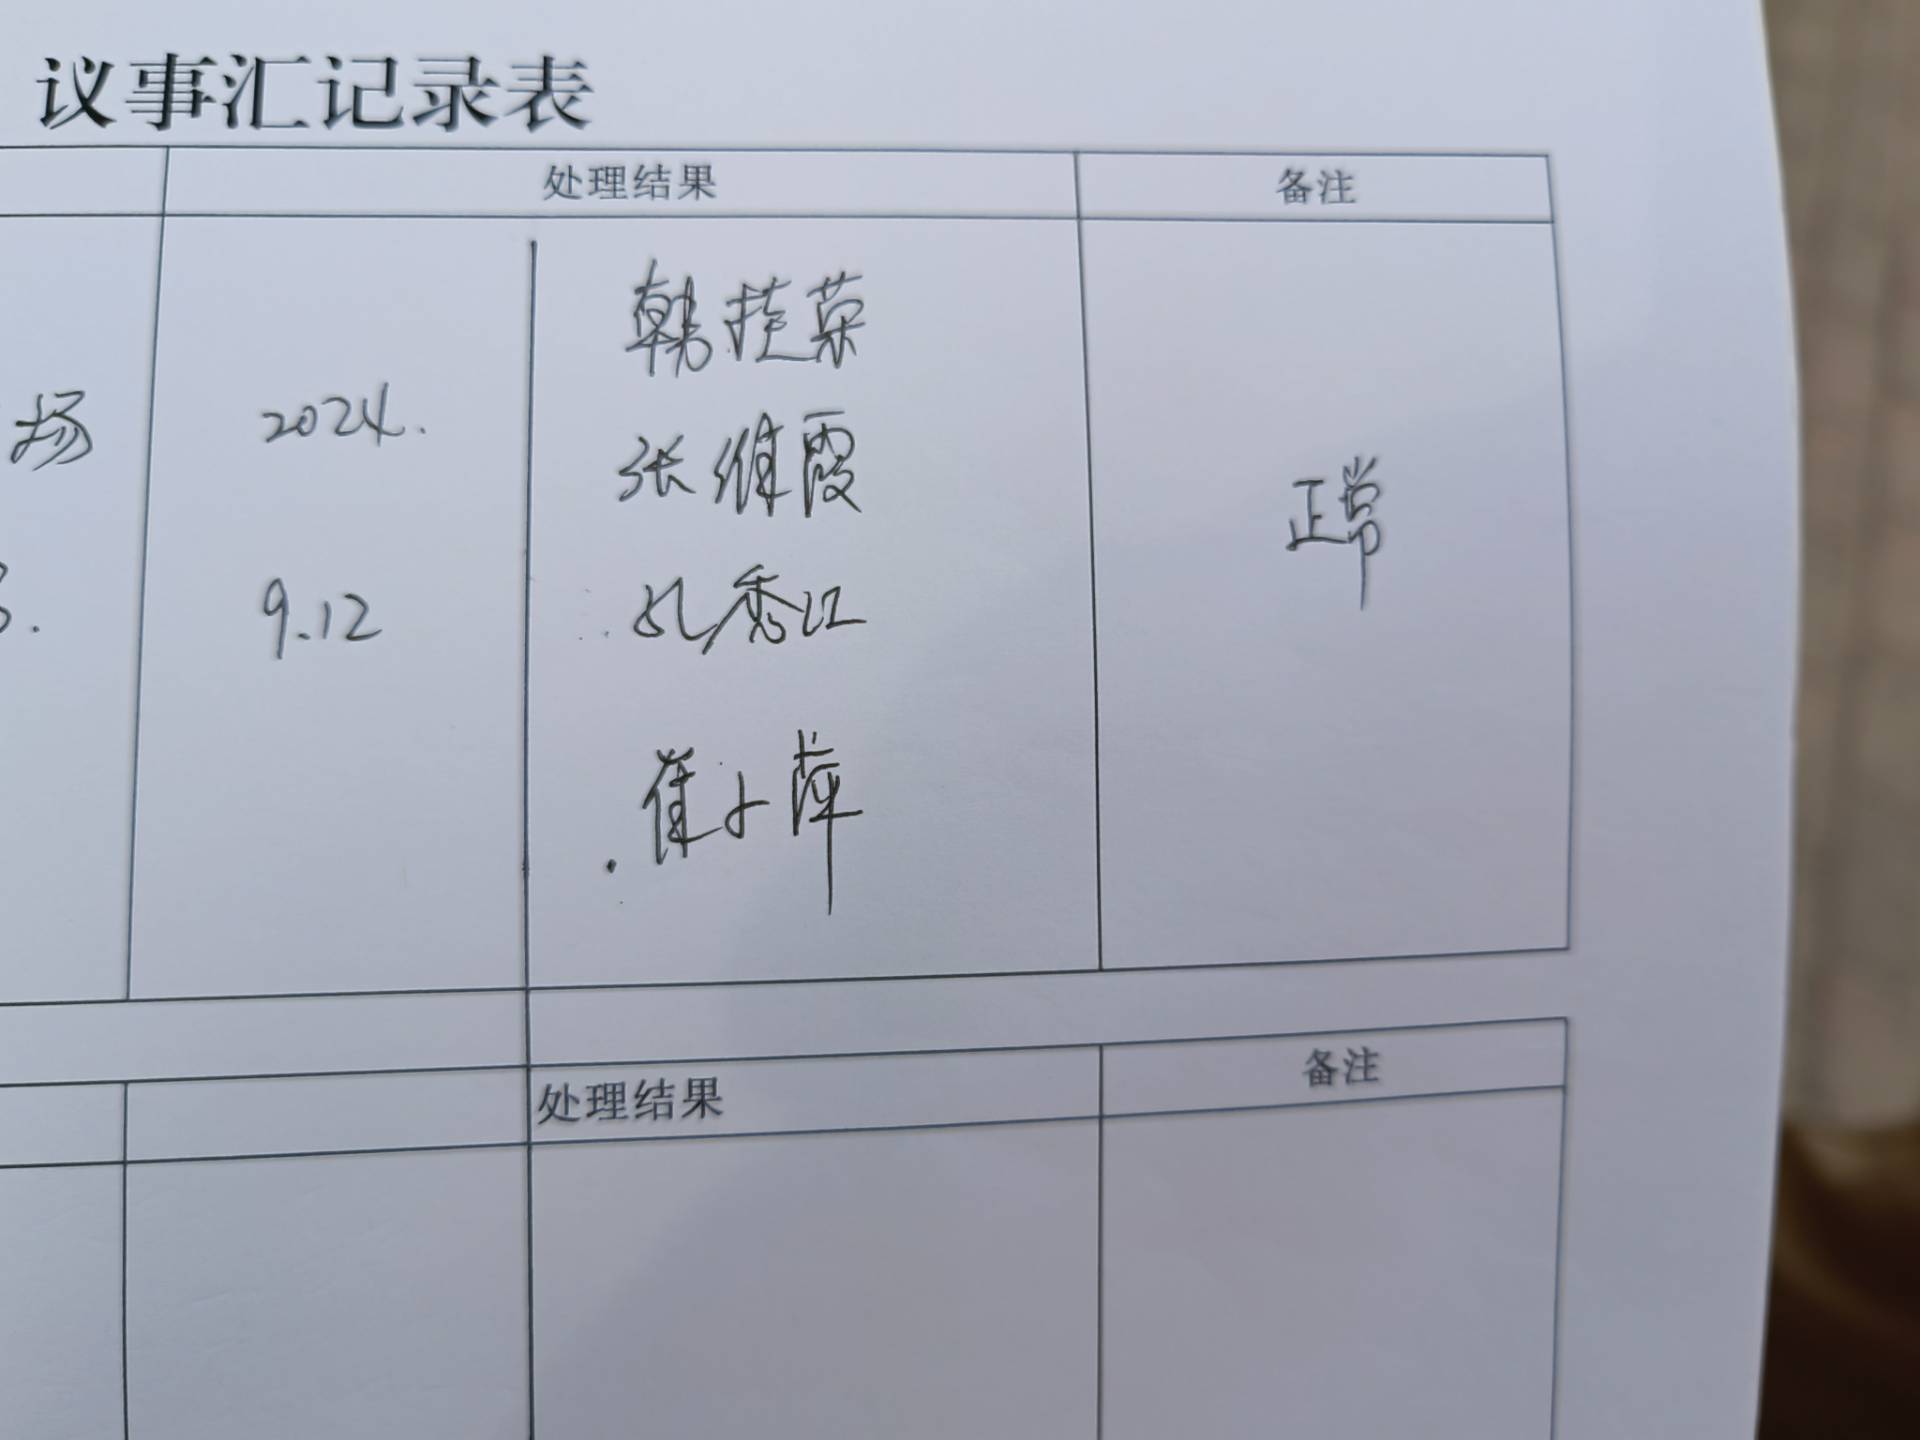 议事汇记录表
处理结果 备注
韩桂荣
场 2024.
张维霞
正常
9.12
孔秀江
崔小萍
处理结果 备注